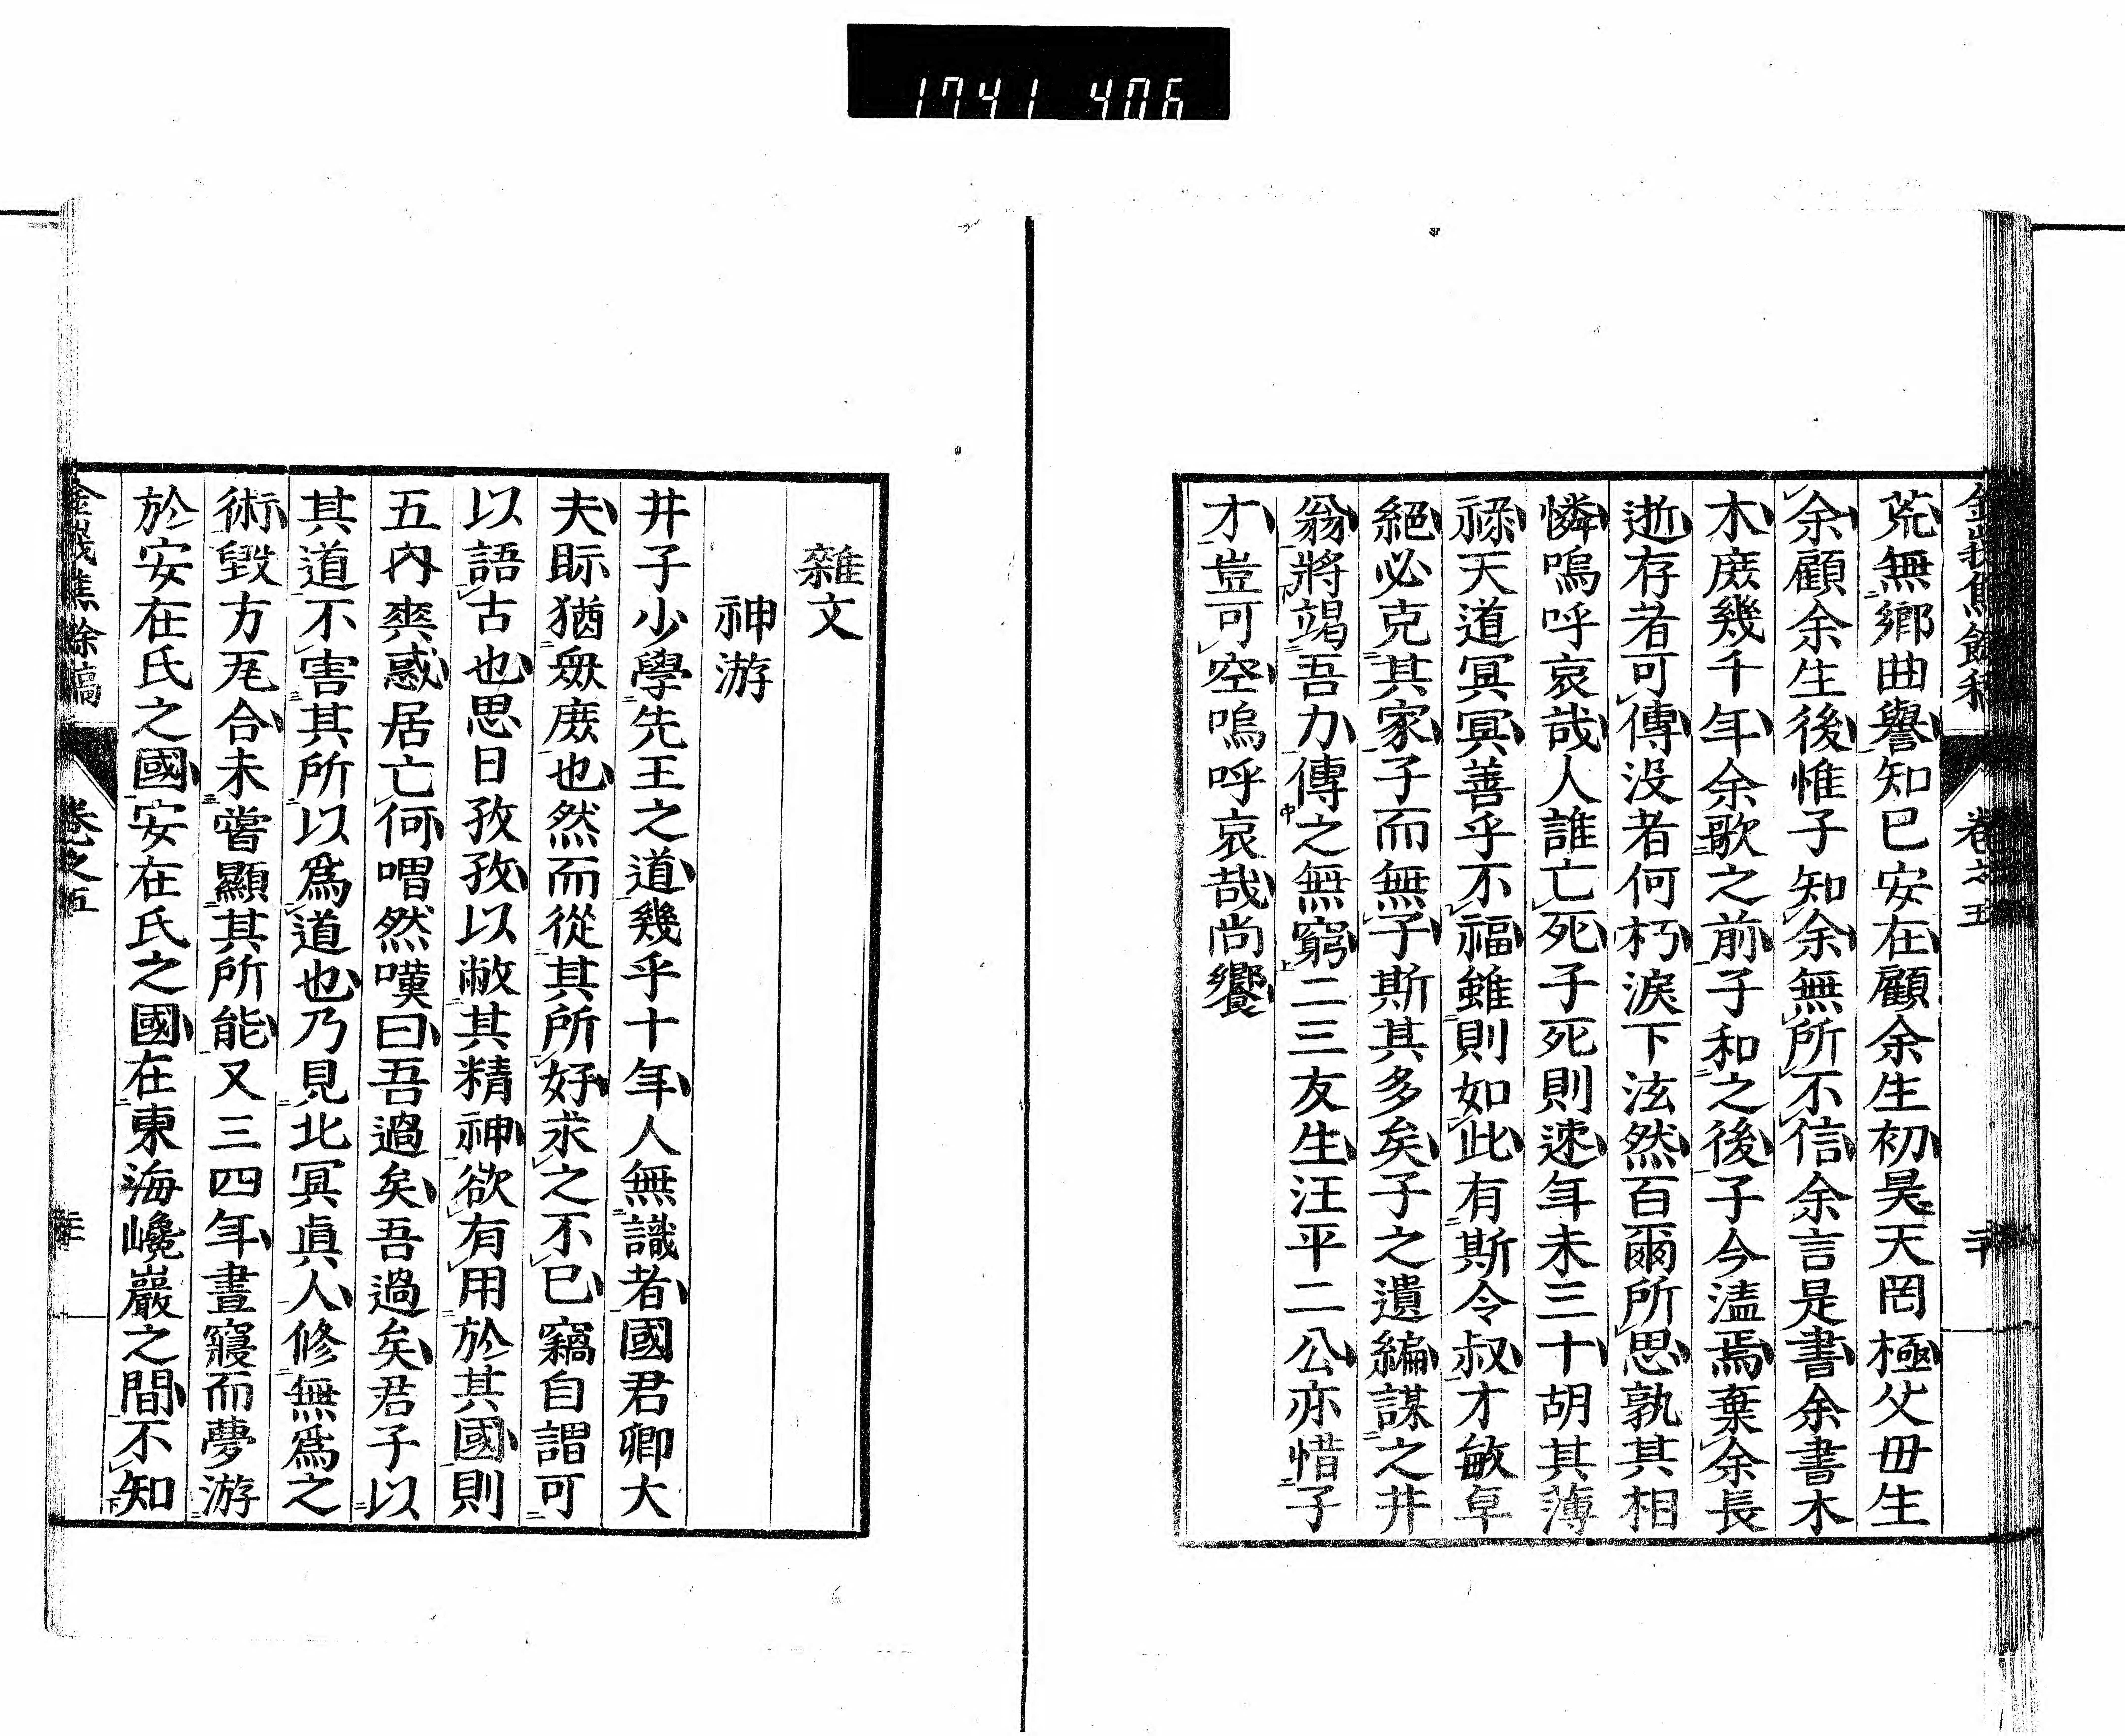 1741 406
金峩焦餘稿 卷之五 二十
荒無鄉曲譽知已安在顧余生初昊天罔極父毋生
余顧余生後惟子知余無所不信余言是書余書木
木庶幾千年余歌之前子和之後子今溘焉棄余長
逝存者可傳没者何朽淚下泫然百爾所思孰其相
憐嗚呼哀哉人誰亡死子死則速年未三十胡其薄
禄天道冥冥善乎不福雖則如此有斯令叔才敏卓
絕必克其家子而無子斯其多矣子之遺編謀之井
翁將竭吾力傳之無窮二三友生汪平二公亦惜子
才豈可空嗚呼哀哉尚饗
雜文
神游
井子少學先王之道幾乎十年人無識者國君卿大
夫眎猶衆庶也然而從其所好求之不已竊自謂可
以語古也思日孜孜以敝其精神欲有用於其國則
五內爽惑居亡何喟然嘆曰吾過矣吾過矣君子以
其道不害其所以爲道也乃見北冥眞人修無爲之
術毀方瓦合未嘗顯其所能又三四年晝寢而夢游
於安在氏之國安在氏之國在東海巉巖之間不知
金峩焦餘稿 卷之五